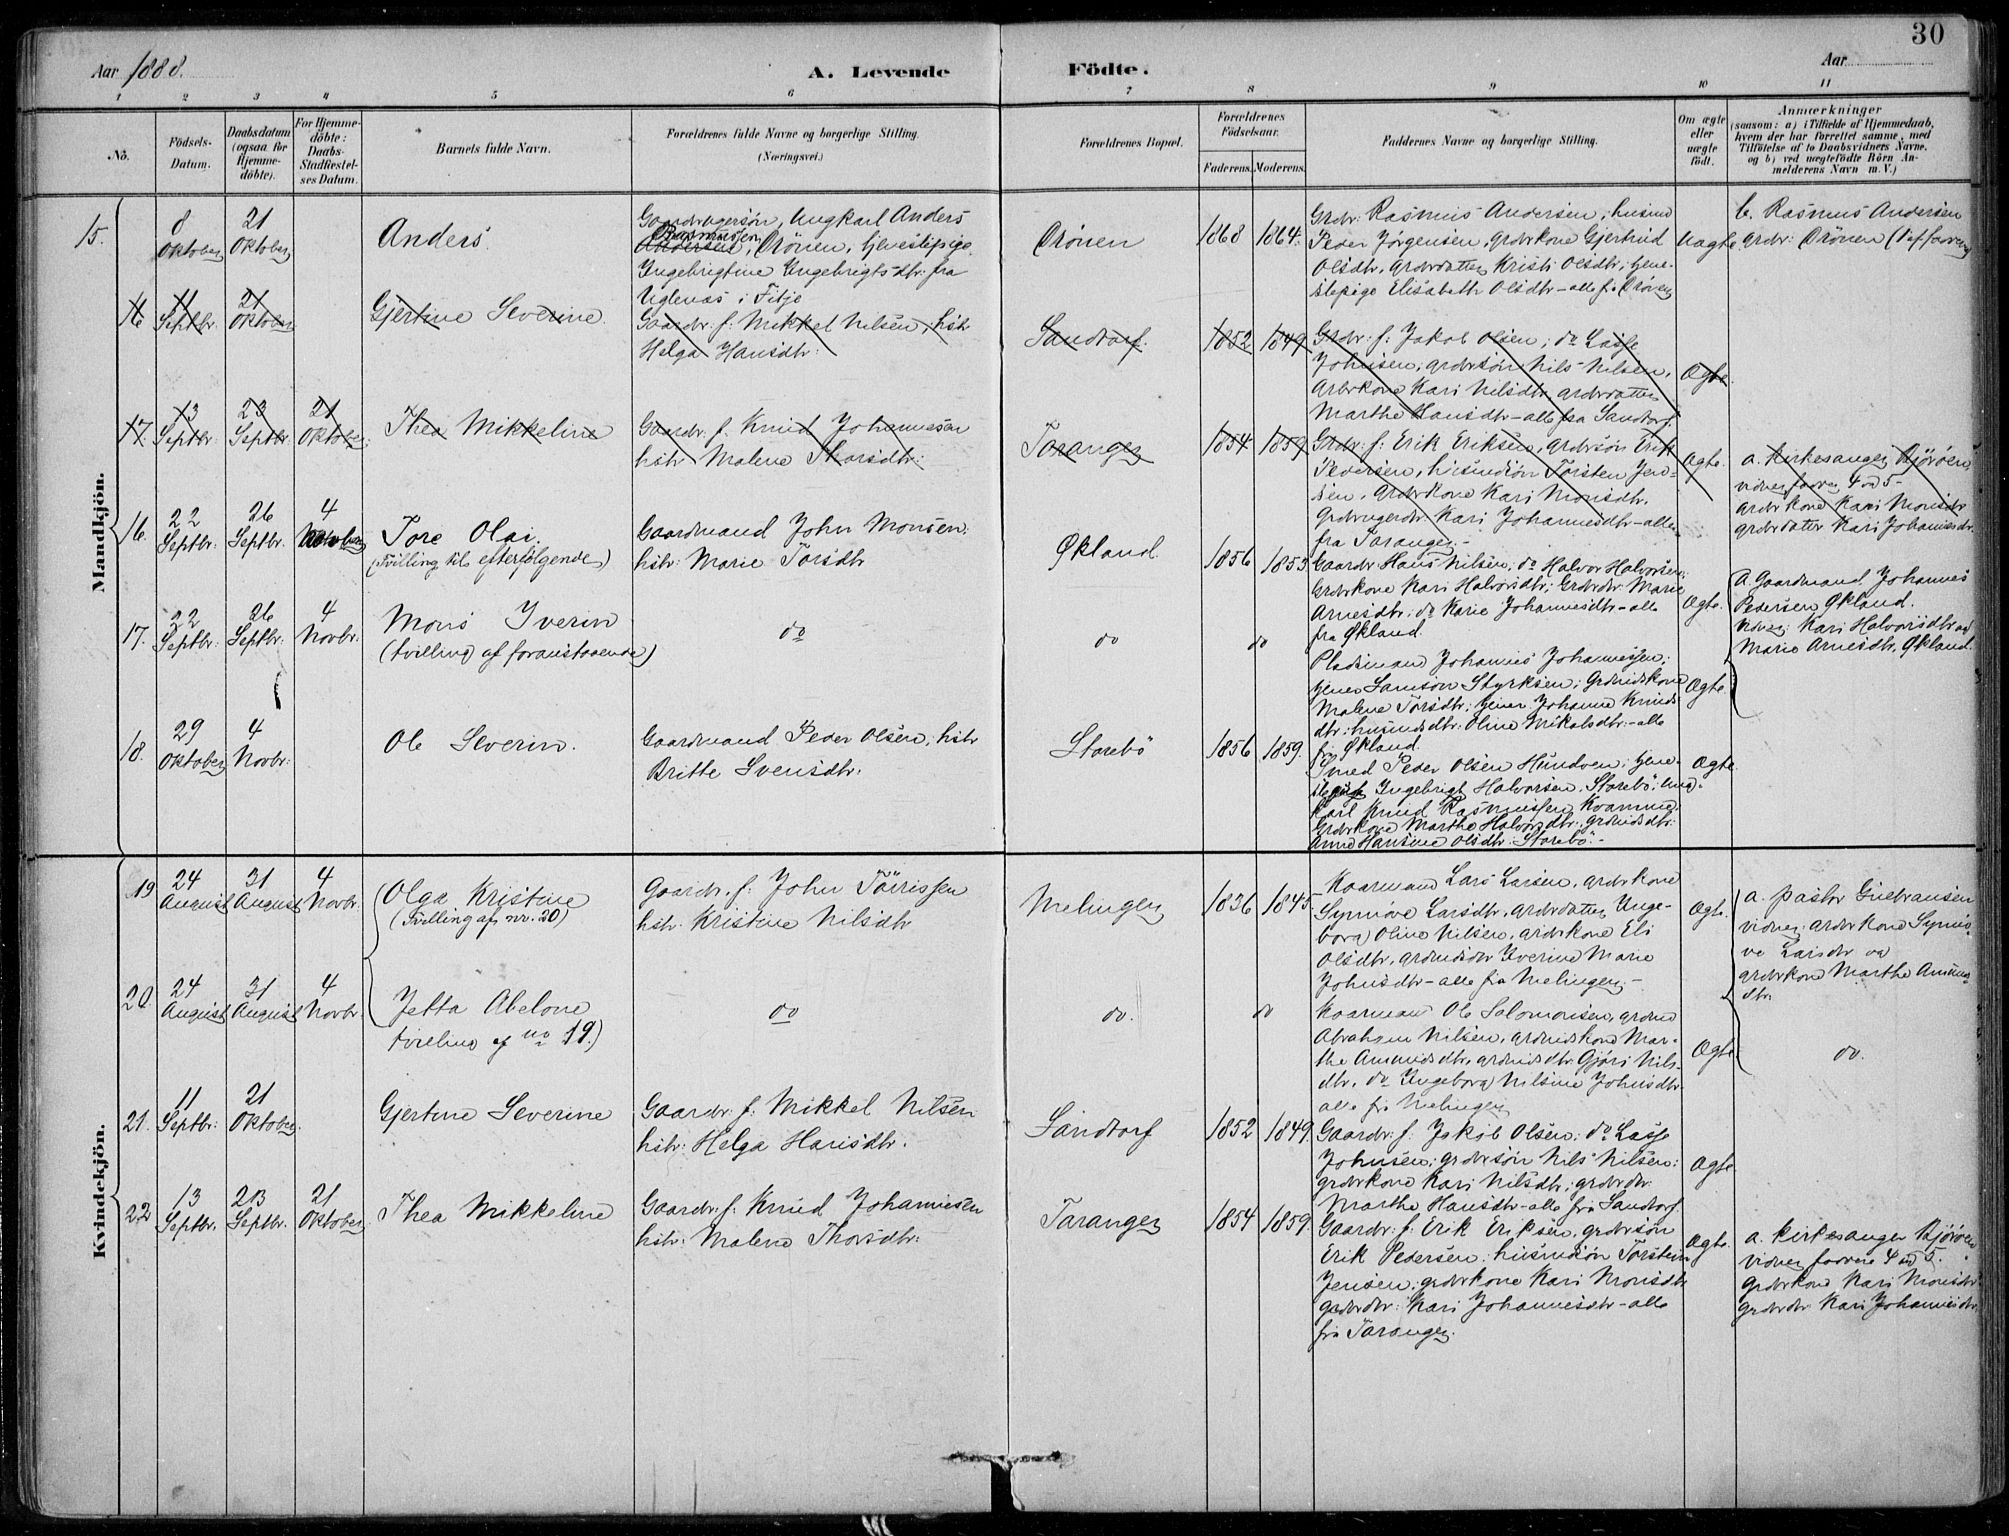 30
Aar 1888.
A. Levende Födte.
Aar
1 2 3 4 5 6 7 8 9 10 11
No.
Födsels-Datum.
Daabsdatum (ogsaa for Hjemme-döbte).
For Hjemme-döbte: Daabs-Stadfæstel-ses Datum.
Barnets fulde Navn.
Forældrenes fulde Navne og borgerlige Stilling.
(Næringsvei.)
Forældrenes Bopæl.
Forældrenes Födselsaar.
Faderens. Moderens.
Faddernes Navne og borgerlige Stilling.
Om ægte eller uægte födt.
Anmærkninger
(saasom: a) i Tilfælde af Hjemmedaab,
hvem der har forrettet samme, med
Tilföielse af to Daabsvidners Navne,
og b) ved uægtefödte Börn An-
melderens Navn m. V.)
Mandkjön.
15.
8 Oktober
21 Oktober
Anders.
Gaardbrugersön, Ungkarl Anders
Rasmussen
Andersen, Drönen, tjenestepige
Ingebrigtine Ingebrigtsdtr. fra
Uglenæs i Fitje
Drönen
1868 1864.
Grdbr. Rasmus Andersen, husmd
Peder Jörgensen, grdbrkone Gjertrud
Olsdtr, grdbrdatter Kristi Olsdtr, tjene-
stepige Elisabeth Olsdtr - alle fra Drönen
Uægte
b. Rasmus Andersen
grdbr. Drönen
16
11 Septbr.
21 Oktober
Gjertine Severine.
Gaardbr. f. Mikkel Nilsen, hstr
Helga Hansdtr:
Sandtorf.
1852 1849
Grdbr. f. Jakob Olsen; do Lasse
Johnsen; grdbrsön Nils Nilsen,
Grdbrkone Kari Nilsdtr, grdbrdatter
Marthe Hansdtr - alle fra Sandtorf.
Ægte.
17.
13 Septbr.
23 Septbr.
21 Oktober
Thea Mikkeline
Gaardbr. f. Knud Johannesen
hstr Malene Thorsdtr:
Taranger
1854 1859
Grdbr: f: Erik Eriksen, grdbrsön Erik
Pedersen, husmdsön Torsten Jen-
sen, Grdbrkone Kari Monsdtr,
Grdbrugerdtr. Kari Johannesdtr - alle
fra Taranger. -
Ægte.
a. Kirkesanger
vidner faddere 4 og 5 -
Grdbrkone Kari Monsdtr
grdbrdatter Kari Johannesdtr.
16.
22 Septbr.
26 Septbr.
4 Novbr
Tore Olai.
(Tvilling til efterfölgende)
Gaardmand John Monsen.
hstr: Marie Torsdtr
Økland
1856 1853
Gaardbr Hans Nilsen; do Halvor Halvorsen;
Grdbrkone Kari Halvorsdtr; Grdbrdtr. Marie
Arnesdtr; do Karie Johannesdtr - alle
fra Økland.
Ægte.
a. Gaardmand Johannes
Pedersen Økland.
Vidner: Kari Halvorsdtr og
Marie Arnesdtr, Økland.
17.
22 Septbr.
26 Septbr.
4 Novbr.
Mons Iverin
(tvilling af foranstaaende)
do
do
do
Pladsmand Johannes Johannessen;
tjener Samson Styrksen; Grdmdskone
Malene Torsdtr; tjener Johanne Knuds-
dtr; husmdsdtr: Oline Mikalsdtr: - alle
fra Økland.
Ægte
18.
29 Oktober
4 Novbr:
Ole Severin.
Gaardmand Peder Olsen, hstr
Britte Svensdtr:
Storebö
1856 1859.
Smed Peder Olsen Hundven; tjene-
Ingebrigt Halvorsen, Storebö; Ung-
karl Knud Rasmussen
Grdbrkone Marthe Halvorsdtr; grdmdsdtr:
Anne Hansine Olsdtr: Storebö. -
Ægte
Kvindekjön.
19
24 August
31 August
4 Novbr.
Olga Kristine
(Tvilling af nr. 20)
Gaardbr. f: John Törrissen
hstr. Kristine Nilsdtr
Melinger
1836 1845
Kaarmand Lars Larsen, grdbrkone
Synnöve Larsdtr, grdbrdatter Inge-
borg Oline Nilsen, grdbrkone Eli
Olsdtr, grdmdsdtr Iverine Marie
Johnsdtr - alle fra Melinger. -
Ægte.
a. pastor Gulbransen
vidner: grdbrkone Synnö-
ve Larsdtr og
grdbrkone Marthe Amunds-
dtr.
20.
24 August
31 August
4 Novbr.
Jetta Abelone
tvilling af no 19.)
do
do.
do
Kaarmand Ole Salomonsen, grdmd
Abraham Nilsen, grdmdskone Mar-
the Amundsdtr, grdmdsdtr Gjöri Nils-
dtr, do Ingeborg Nilsine Johnsdtr
alle fra Melinger
Ægte
do.
21.
11 Septbr:
21 Oktober.
Gjertine Severine
Gaardbr: f: Mikkel Nilsen
hstr: Helga Hansdtr.
Sandtorf
1852 1849
Gaardbr: f: Jakob Olsen; do Lasse
Johnsen; grdbrsön Nils Nilsen;
grdbrkone Kari Nilsdtr; grdbrdtr:
Marthe Hansdtr - alle fra Sandtorf.
Ægte
22
13 Septbr.
23 Septbr.
21 Oktober
Thea Mikkeline
Gaardbr: f: Knud Johannesen
hstr: Malene Thorsdtr:
Taranger
1854 1859
Gaardbr: f. Erik Eriksen, grdbrsön
Erik Pedersen, husmdsön Torstein
Jensen; grdbrkone Kari Monsdtr
grdbrdtr: Kari Johannesdtr - alle
fra Taranger.
Ægte.
a. Kirkesanger
vidner faddere 4 og 5.
Grdbrkone Kari Monsdtr
grdbrdtr Kari Johannesdtr.